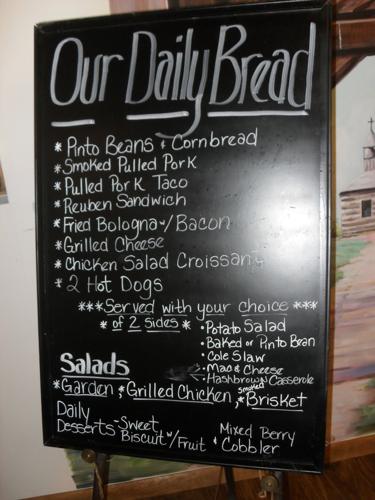 Our Daily Bread
* Pinto Beans & Cornbread
* Smoked Pulled Pork
* Pulled Pork Taco
* Reuben Sandwich
* Fried Bologna w/ Bacon
* Grilled Cheese
* Chicken Salad Croissant
* 2 Hot Dogs
*** Served with your choice ***
* of 2 sides *
• Potato Salad
• Baked or Pinto Bean
• Cole Slaw
• Mac & Cheese
• Hashbrown Casserole
Salads
* Garden, * Grilled Chicken, * Smoked Brisket
Daily Desserts - Sweet Biscuit w/ Fruit & Mixed Berry Cobbler